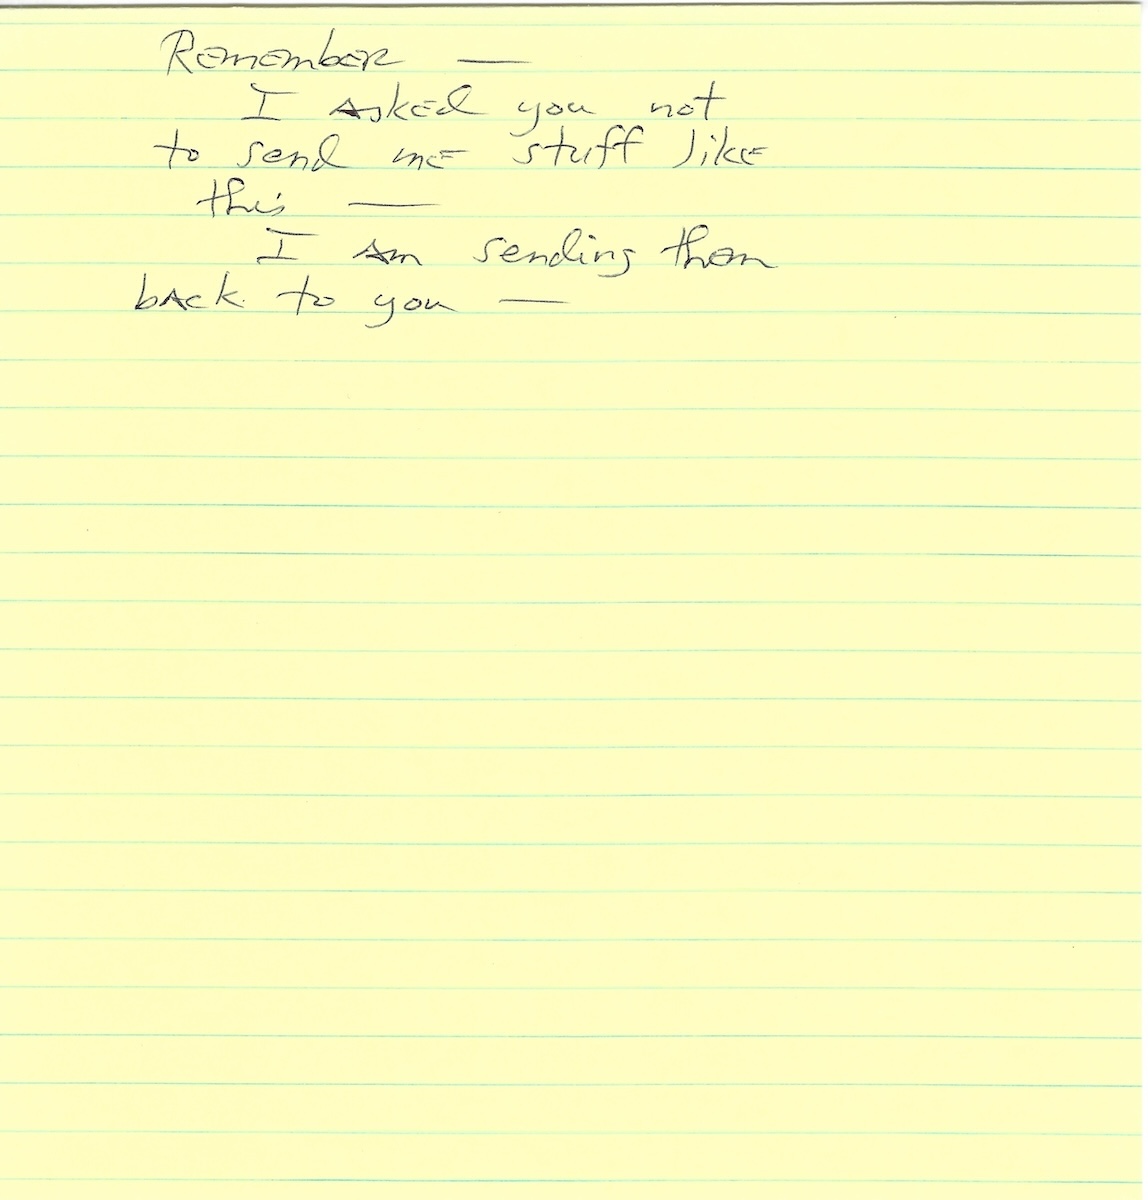 Remember —
I Asked you not
to send me stuff like
this —
I Am sending them
bAck to you —